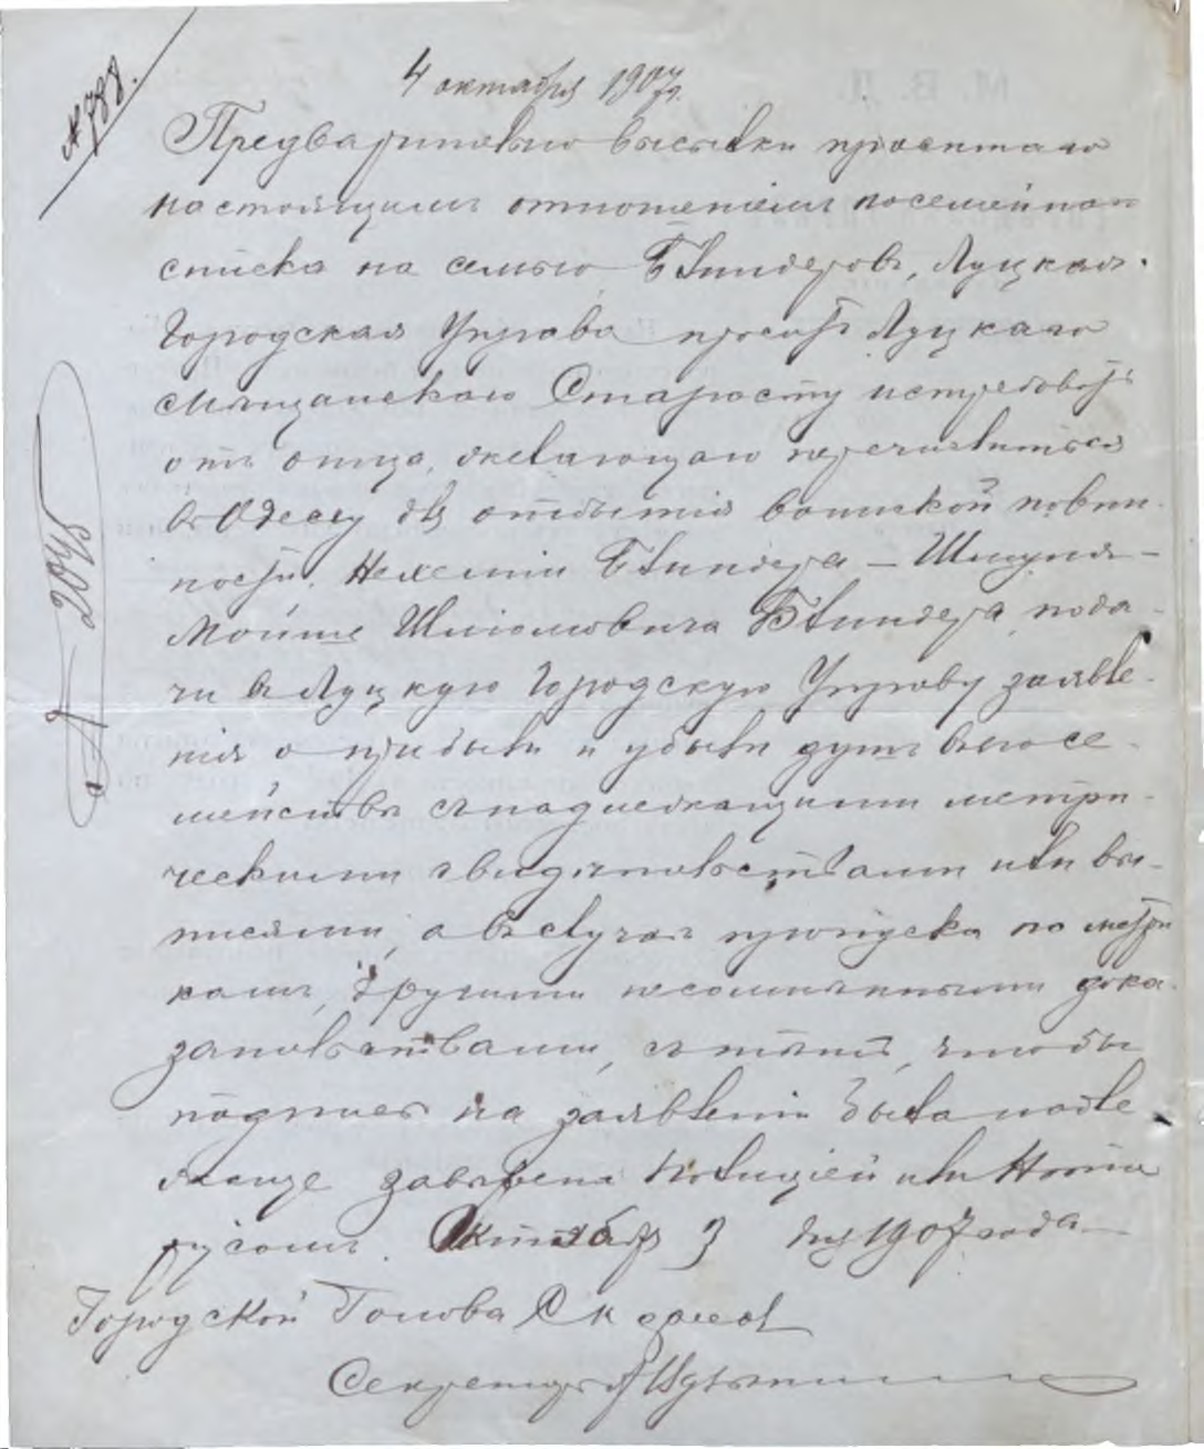 № 788.
4 октября 1907 г.
Предварительно высылки просимаго
настоящимъ отношеніемъ посемейнаго
списка на семью Блиндеровъ, Луцкая
Городская Управа проситъ Луцкаго
Мѣщанскаго Старосту истребовать
отъ отца, желающаго перечислиться
въ Одессу для отбытія воинской повин-
ности Нехеміи Блиндера – Шмуля-
Мойше Шліомовича Блиндера пода-
чи въ Луцкую Городскую Управу заявле-
нія о прибыли и убыли душъ въ его се-
мействѣ съ надлежащими метри-
ческими свидѣтельствами или вы-
писями, а въ случаѣ пропуска по метри
камъ, другими несомнѣнными дока-
зательствами, съ тѣмъ, чтобы
подпись на заявленіи была надле
жаще завѣрена Полиціей или Нота
ріусомъ. Октября 3 дня 1907 года
Городской Голова
Секретарь